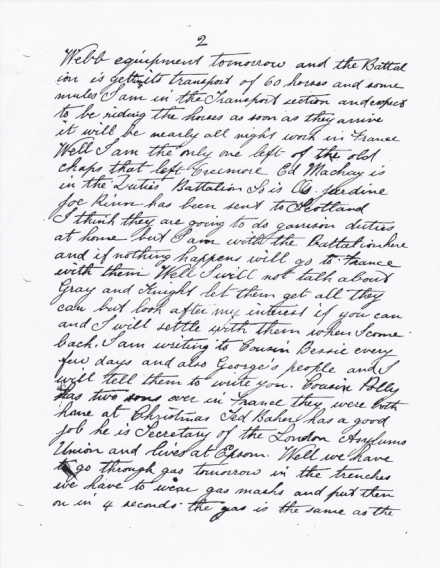 2
Webb equipment tomorrow and the Battal
ion is getting its transport of 60 horses and some
mules I am in the Transport section and expect
to be riding the horses as soon as they arrive
it will be nearly all night work in France
Well I am the only one left of the old
chaps that left Creemore Ed Mackay is
in the Duties Battalion So is Jardine
Joe has been sent to Scotland
I think they are going to do garrison duties
at home but I am with the Battalion here
and if nothing happens will go to France
with them Well I will not talk about
Gray and Knight let them get all they
can but look after my interest if you can
and I will settle with them when I come
back. I am writing to Cousin Bessie every
few days and also George's people and I
will tell them to write you. Cousin Polly
has two sons over in France they were both
home at Christmas Ted Baker has a good
job he is Secretary of the London Asylums
Union and lives at Epsom. Well we have
to go through gas tomorrow in the trenches
we have to wear gas masks and put them
on in 4 seconds the gas is the same as the